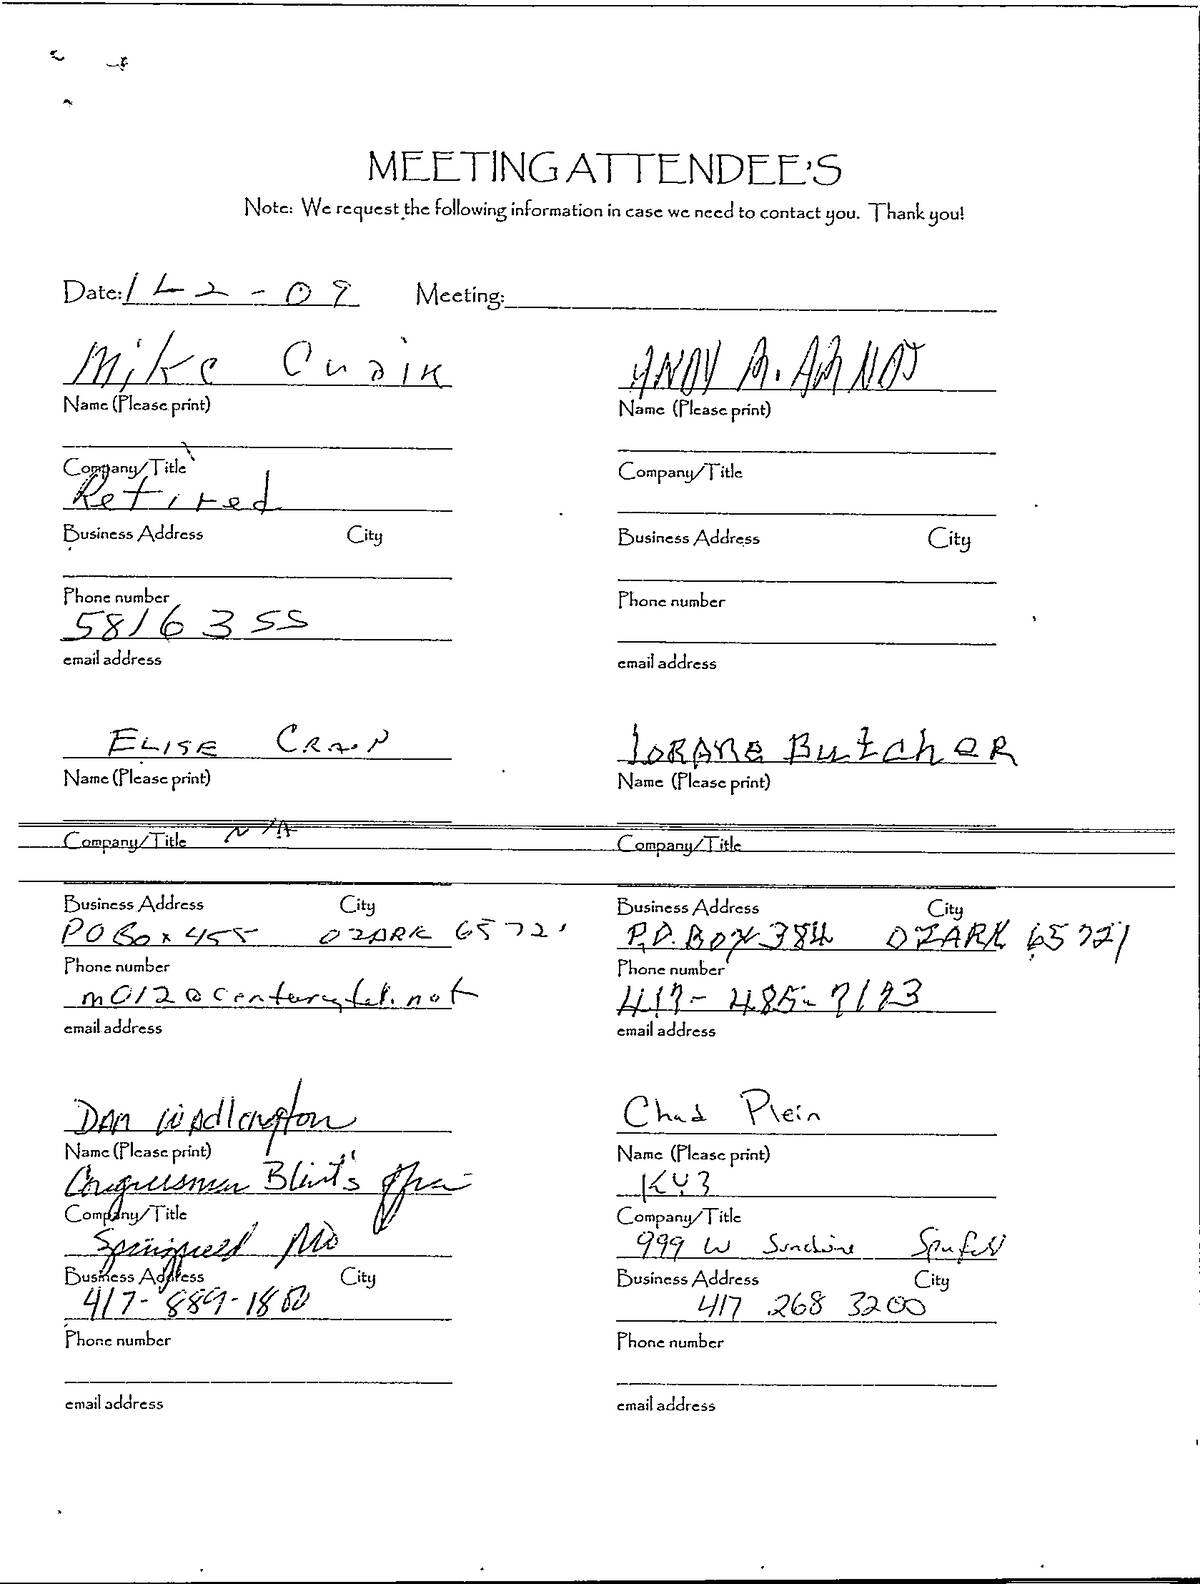 MEETING ATTENDEE'S
Note: We request the following information in case we need to contact you. Thank you!
Date: 1-2-09 Meeting:
Mike
Name (Please print)
Company/Title
Retired
Business Address City
Phone number
5816355
email address
ANDY M. ARNOT
Name (Please print)
Company/Title
Business Address City
Phone number
email address
ELISE CRAIN
Name (Please print)
Company/Title N/A
Business Address City
PO Box 455 OZARK 65721
Phone number
mc12@centurytel.net
email address
LORANE ButchER
Name (Please print)
Company/Title
Business Address City
P.O. BOX 384 OZARK 65721
Phone number
417-485-7193
email address
DAN WADlington
Name (Please print)
Congressman Blunt's office
Company/Title
Springfield Mo
Business Address City
417-889-1800
Phone number
email address
Chad Plein
Name (Please print)
KY3
Company/Title
999 W Sunshine Spnfld
Business Address City
417 268 3200
Phone number
email address